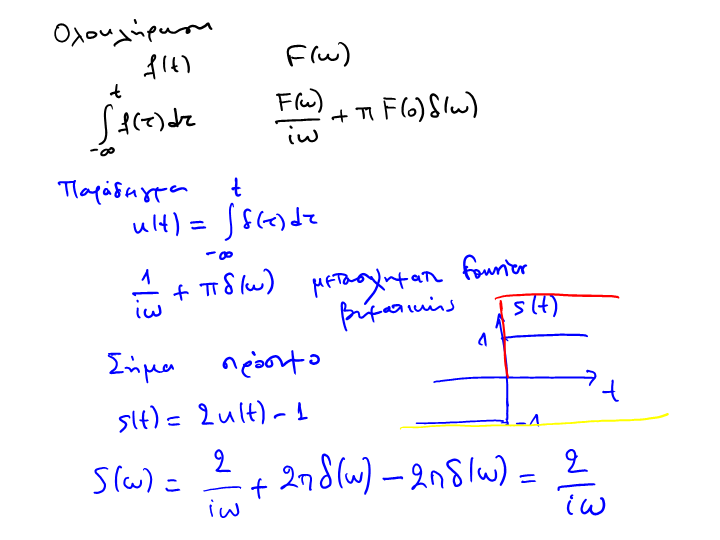 Ολοκλήρωση
f(t) F(ω)
∫_{-∞}^{t} f(τ)dτ F(ω)/iω + π F(0) δ(ω)
Παράδειγμα
u(t) = ∫_{-∞}^{t} δ(τ)dτ
1/iω + πδ(ω) μετασχηματ Fourier
βηματικής
s(t)
1
t
-1
Σήμα πρόσημο
s(t) = 2u(t) - 1
S(ω) = 2/iω + 2πδ(ω) - 2πδ(ω) = 2/iω